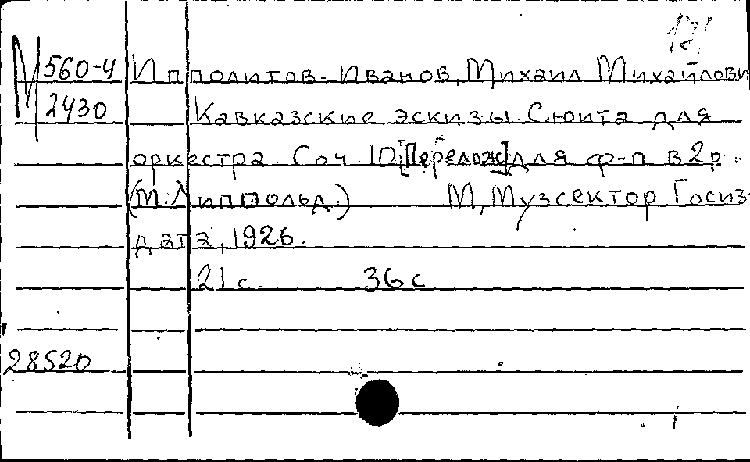 М 560-4 Ипполитов-Иванов, Михаил Михайлови
2430 Кавказские эскизы Сюита для
оркестра Соч 10 [Перелож] для ф-п в 2 р.
(М. Липпольд.) М, Музсектор Госиз-
дата, 1926.
21 с. 36 с
28520